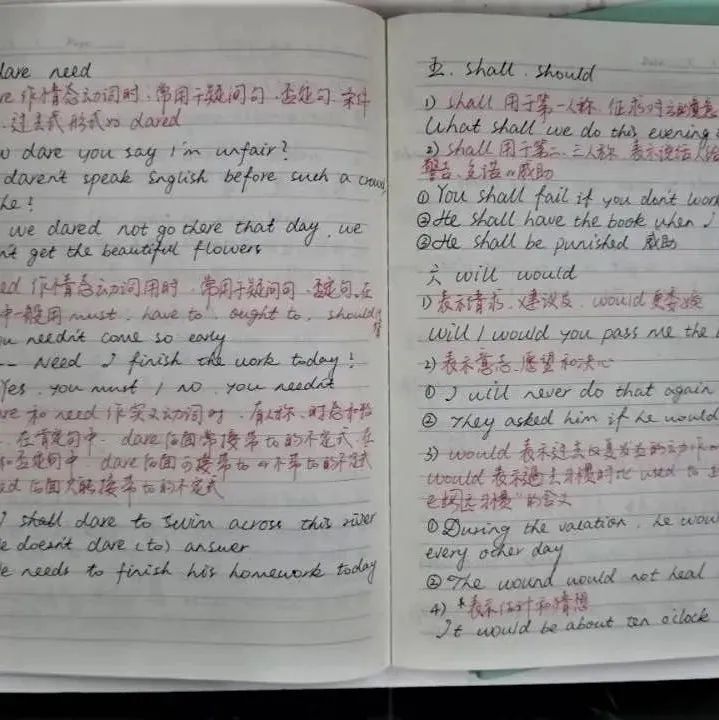 dare need
作情态动词时、常用于疑问句、否定句、条件
过去式形式为 dared
dare you say I'm unfair?
daren't speak English before such a crowd,
he!
we dared not go there that day, we
n't get the beautiful flowers
作情态动词用时、常用于疑问句、否定句。在
中一般用 must, have to, ought to, should
needn't come so early
-- Need I finish the work today?
Yes, you must / no, you needn't
和 need 作实义动词时、有人称、时态和数
在肯定句中, dare 后面常接带 to 的不定式, 在
和否定句中, dare 后面可接带 to 或不带 to 的不定式
后面只能接带 to 的不定式
I shall dare to swim across this river
e doesn't dare (to) answer
e needs to finish his homework today
Page
Date
五. shall. should
1) shall 用于第一人称, 征求对方的意见
What shall we do this evening
2) shall 用于第二、三人称, 表示说话人给
警告、允诺 威胁
① You shall fail if you don't work
② He shall have the book when I
③ He shall be punished 威胁
六 will would
1) 表示请求、建议, would 更委婉
Will / would you pass me the
2) 表示意志, 愿望和决心
① I will never do that again
② They asked him if he would
3) would 表示过去反复发生的动作
would 表示过去习惯时比 used to
"的含义
① During the vacation, he would
every other day
② The wound would not heal
4) *表示估计和猜想
It would be about ten o'clock